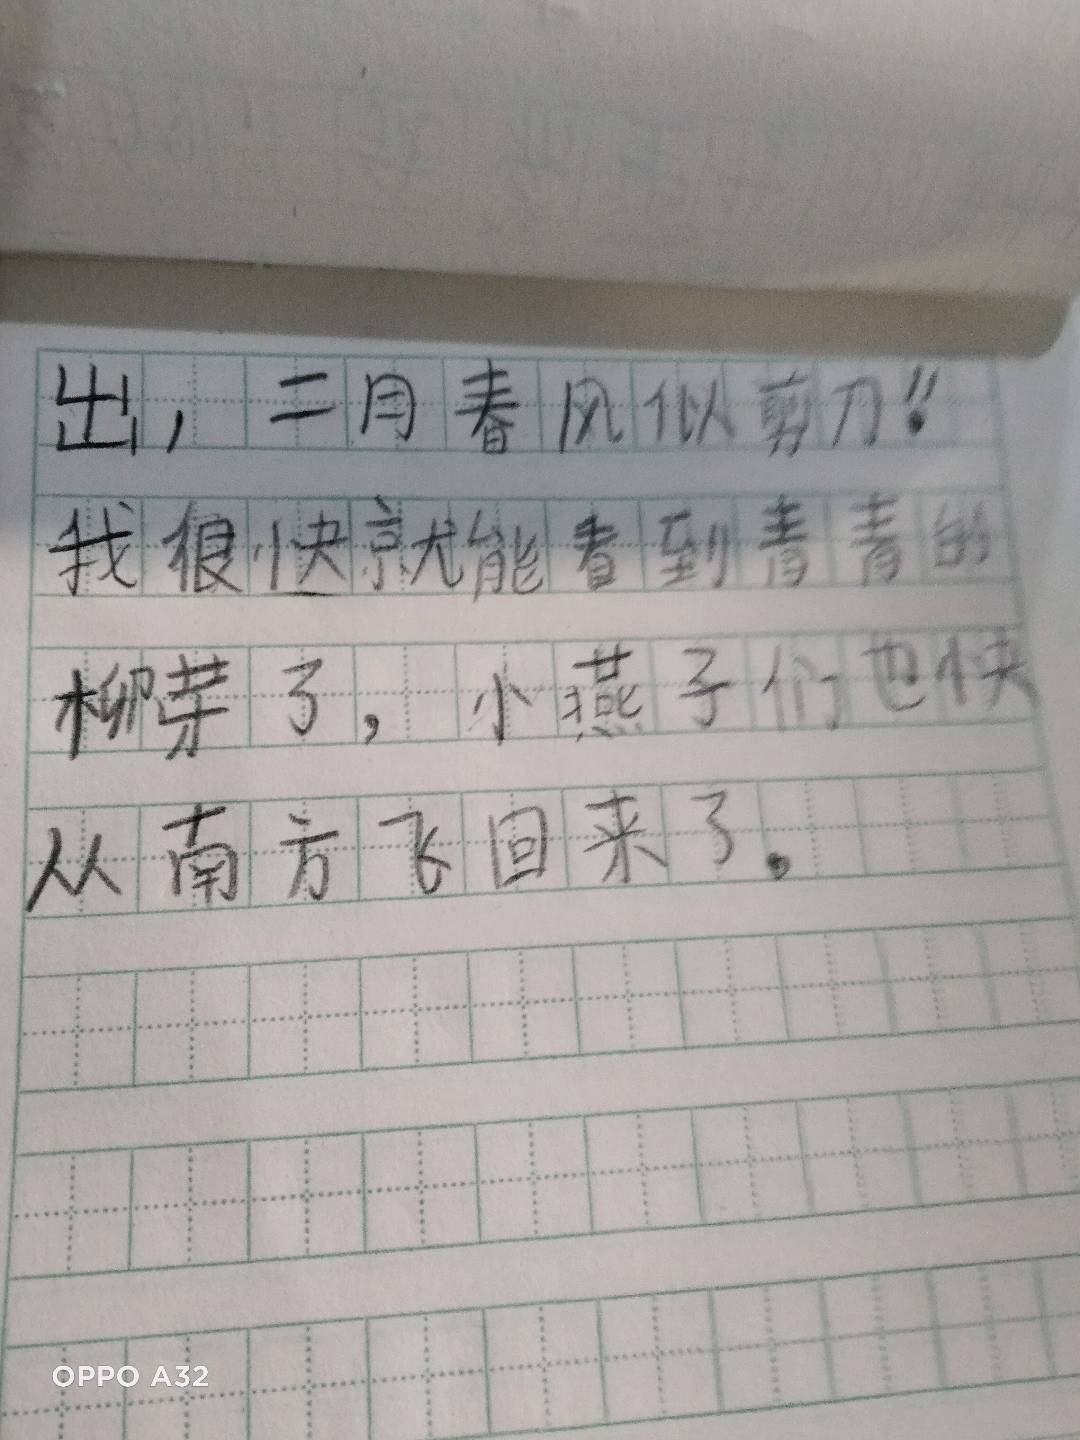 出，二月春风似剪刀！”
我很快就能看到青青的
柳芽了，小燕子们也快
从南方飞回来了。
OPPO A32